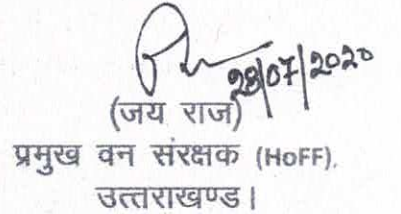 28/07/2020
(जय राज)
प्रमुख वन संरक्षक (HoFF),
उत्तराखण्ड।